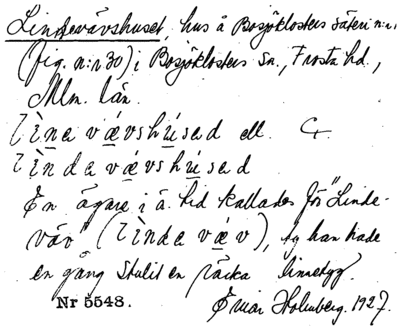 Lindevävshuset, hus å Bosjöklosters säteri n:r 1
(fig. n:r 30) i Bosjöklosters sn., Frosta hd.,
Mlm. län.
lìna vævshúsad ell.
lìnda vævshúsad
En ägare i ä. tid kallades för "Linde-
väv" (lìnda væv), ty han hade
en gång stulit en räcka linnetyg.
Nr 5548. Einar Holmberg. 1927.